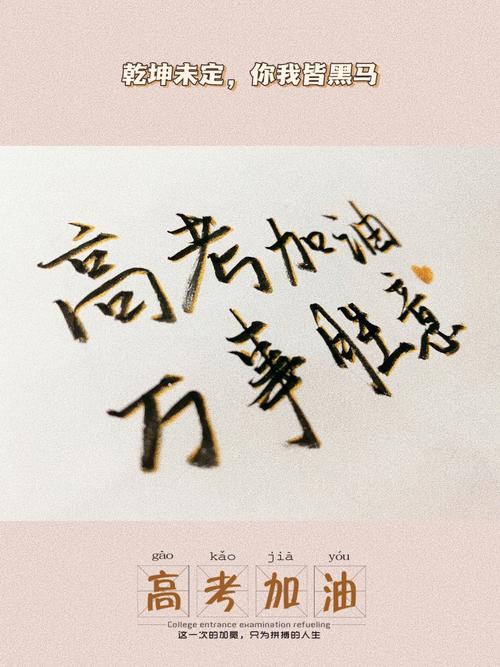 乾坤未定，你我皆黑马
高考加油
万事胜意
gāo kǎo jiā yóu
高考加油
College entrance examination refueling
这一次的加冕，只为拼搏的人生